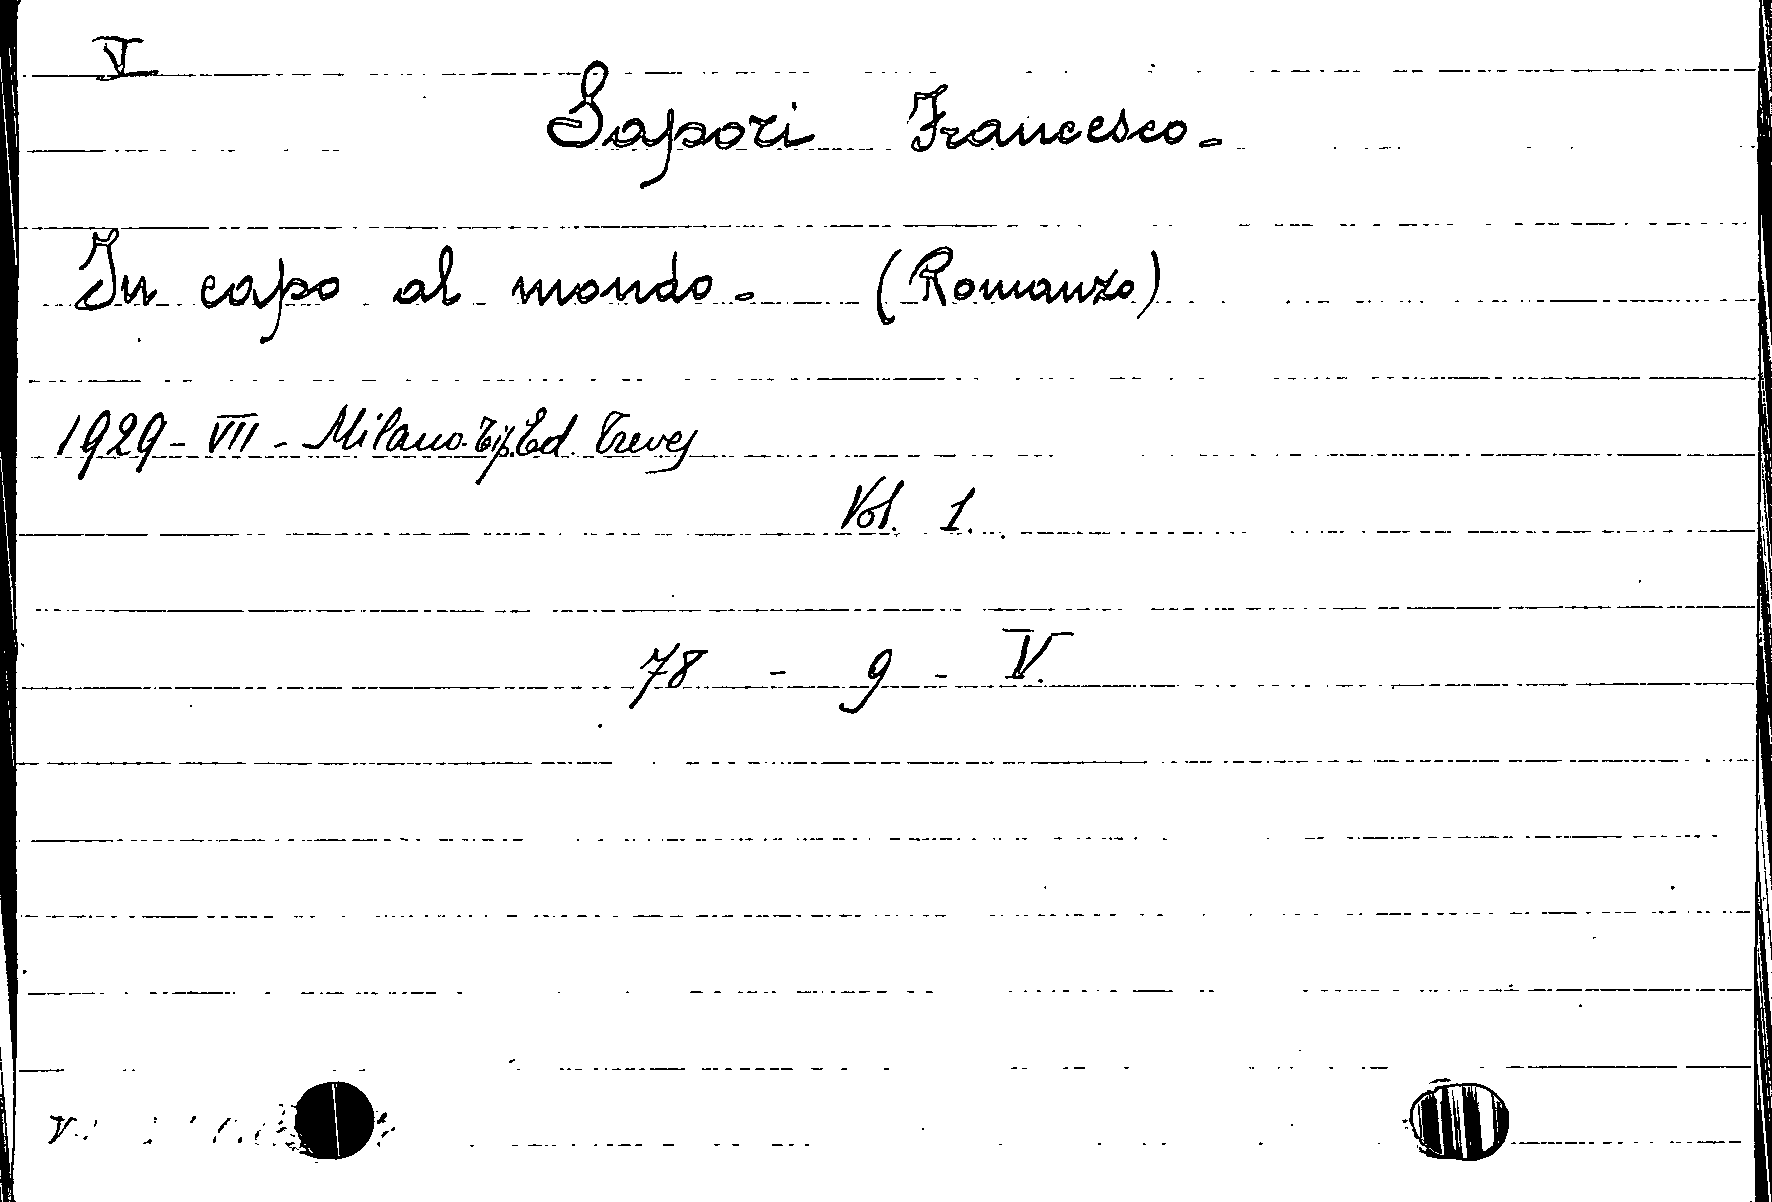 V
Sapori Francesco.
In capo al mondo. (Romanzo)
1929 - VII - Milano. Tip. Ed. Treves
Vol. 1.
78 - 9 - V.